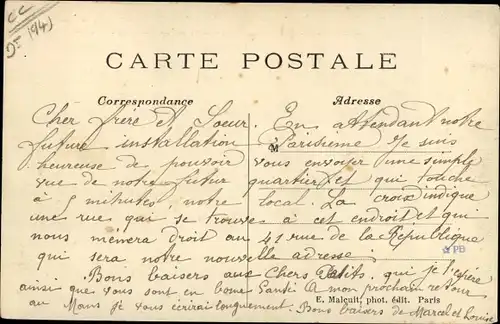 CC
(94)
CARTE POSTALE
Correspondance Adresse
Cher frère et Soeur. En attendant notre
future installation Parisienne Je suis
M
heureuse de pouvoir vous envoyer une simple
vue de notre futur quartier et qui touche
à 5 minutes, notre local. La croix indique
une rue qui se trouve à cet endroit et qui
nous mènera droit au 41 rue de la République
qui sera notre nouvelle adresse
PB
Bons baisers aux Chers Petits, qui je l'espère
ainsi que vous sont en bonne Santé A mon prochain retour
E. Malcuit, phot. édit. Paris
au Mans je vous écrirai longuement. Bons baisers de Marcel et Louise